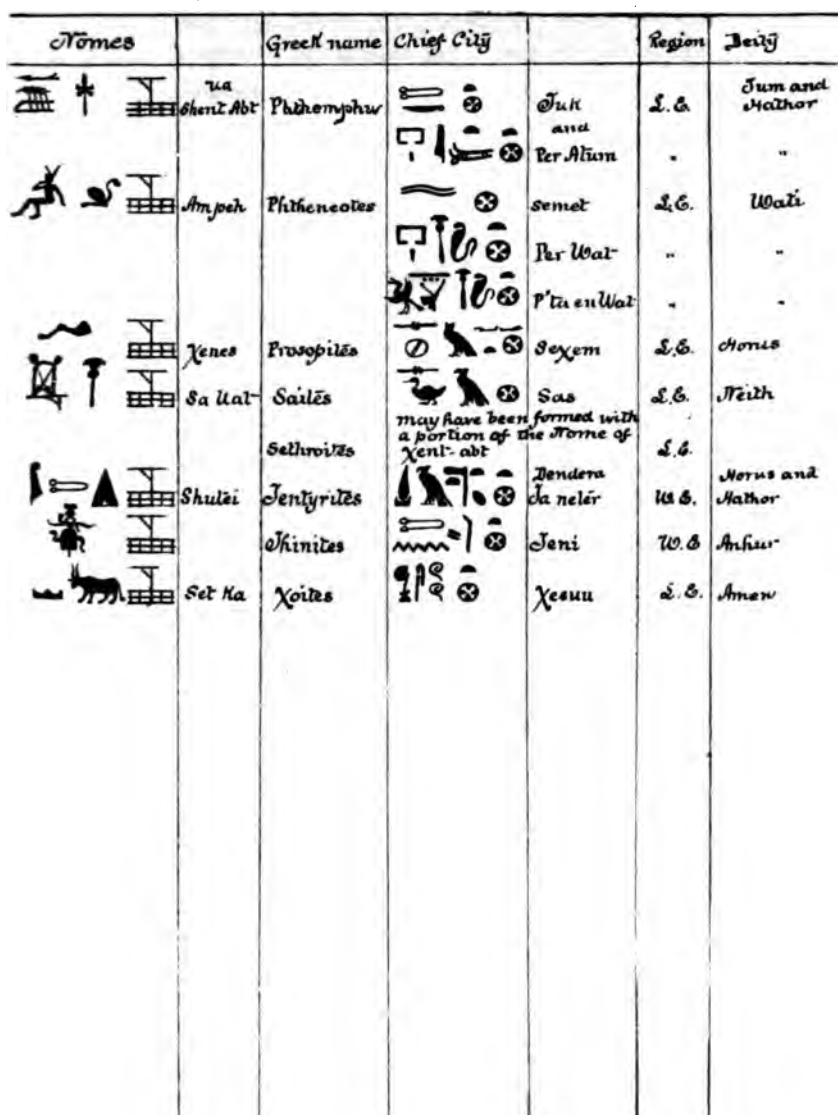 Nomes Greek name Chief City Region Deity
ua
Shent Abt Phthemphw Tuk L.E. Tum and
Hathor
and
Per Atum " "
Ampeh Phtheneotes Semet L.E. Wati
Per Wat " "
P'ta en Wat " "
Xenes Prosopites Sexem L.E. Horus
Sa Uat Saites Sas L.E. Neith
may have been formed with
a portion of the Nome of
Sethroites Xent-abt L.E.
Shutei Tentyrites Dendera
Ta neter U.E. Horus and
Hathor
Thinites Teni U.E Anhur
Set Ka Xoites Xesuu L.E. Amen